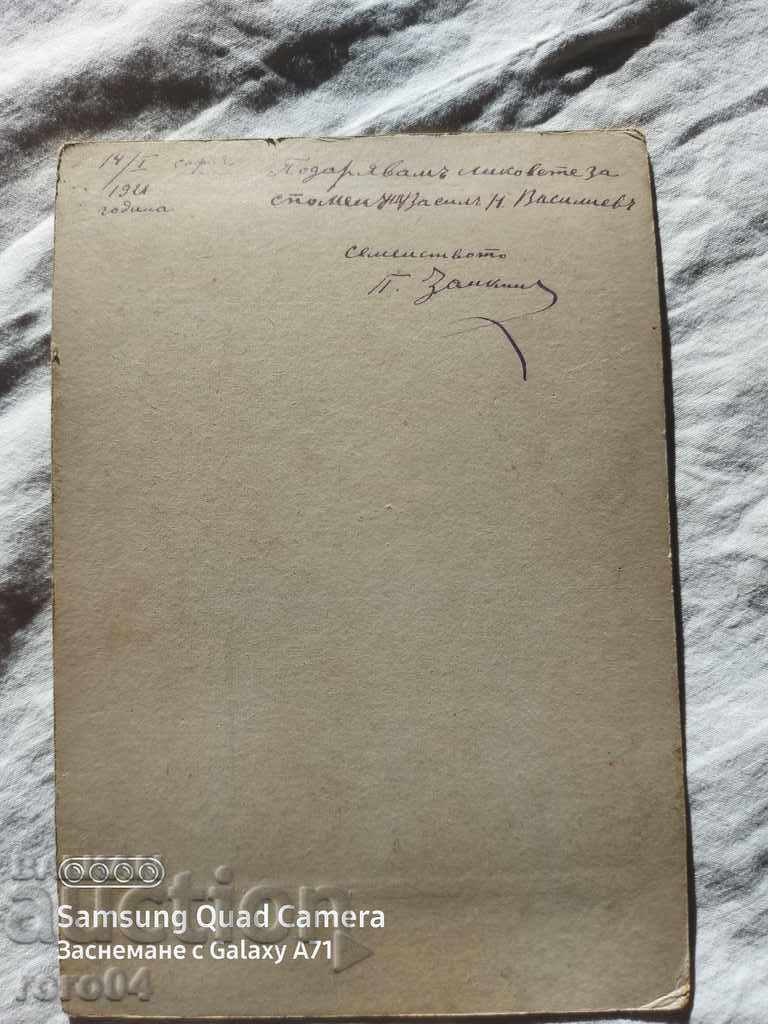 14/I София
1921
година
Подарявамъ ликовете за
споменъ Василъ Н. Василиевъ
семейството
П.
BALKAN
auction
Samsung Quad Camera
Заснемане с Galaxy A71
roro04